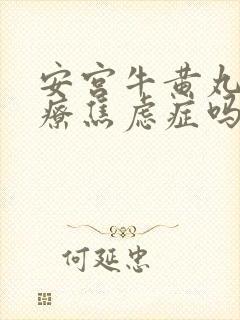 安宫牛黄丸
疗焦虑症吗
何延忠